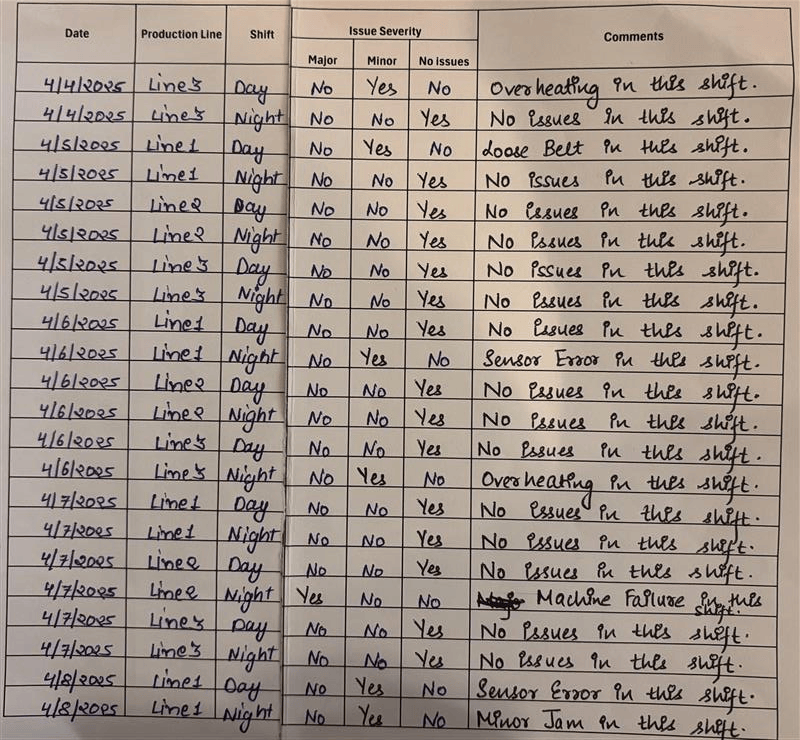 Date Production Line Shift Issue Severity Comments
Major Minor No issues
4/4/2025 Line3 Day No Yes No Overheating in this shift.
4/4/2025 Line3 Night No No Yes No issues in this shift.
4/5/2025 Line1 Day No Yes No Loose Belt in this shift.
4/5/2025 Line1 Night No No Yes No issues in this shift.
4/5/2025 Line2 Day No No Yes No issues in this shift.
4/5/2025 Line2 Night No No Yes No issues in this shift.
4/5/2025 Line3 Day No No Yes No issues in this shift.
4/5/2025 Line3 Night No No Yes No issues in this shift.
4/6/2025 Line1 Day No No Yes No issues in this shift.
4/6/2025 Line1 Night No Yes No Sensor Error in this shift.
4/6/2025 Line2 Day No No Yes No issues in this shift.
4/6/2025 Line2 Night No No Yes No issues in this shift.
4/6/2025 Line3 Day No No Yes No issues in this shift.
4/6/2025 Line3 Night No Yes No Overheating in this shift.
4/7/2025 Line1 Day No No Yes No issues in this shift.
4/7/2025 Line1 Night No No Yes No issues in this shift.
4/7/2025 Line2 Day No No Yes No issues in this shift.
4/7/2025 Line2 Night Yes No No Machine Failure in this shift.
4/7/2025 Line3 Day No No Yes No issues in this shift.
4/7/2025 Line3 Night No No Yes No issues in this shift.
4/8/2025 Line1 Day No Yes No Sensor Error in this shift.
4/8/2025 Line1 Night No Yes No Minor Jam in this shift.